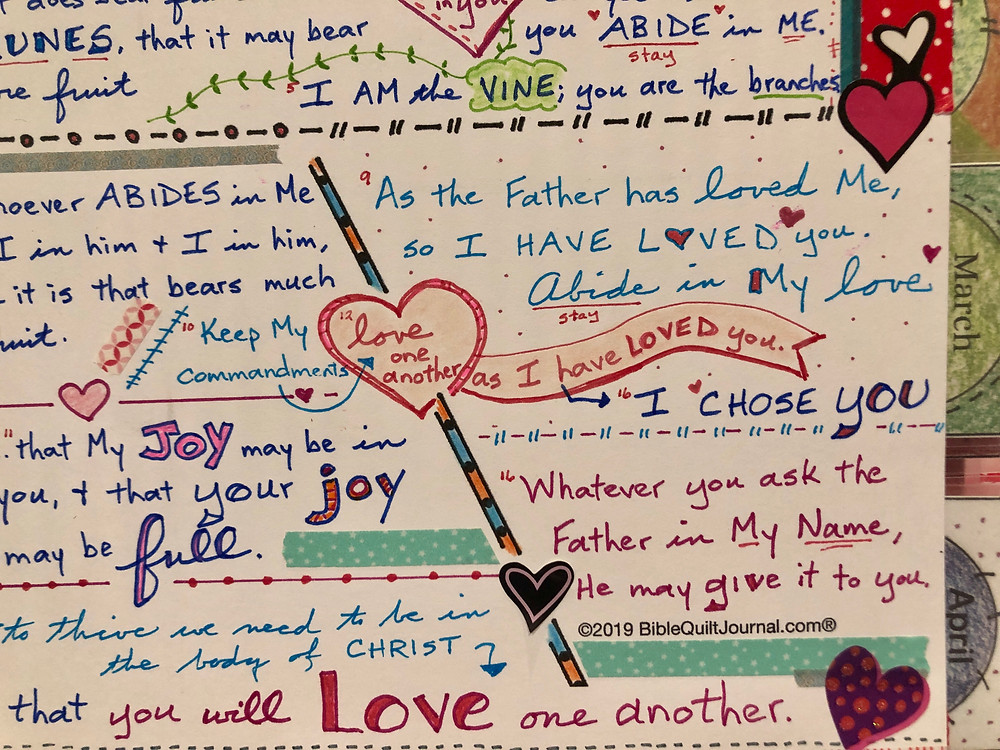 in you
you ABIDE in ME.
stay
UNES, that it may bear
fruit
5 I AM the VINE; you are the branches
ABIDES in Me
I in him + I in him,
it is that bears much
9 As the Father has loved Me,
so I HAVE LOVED you.
Abide in My love
stay
10 Keep My
commandments
12 love
one
another
as I have LOVED you.
16 I CHOSE YOU
11 that My JOY may be in
you, + that your joy
may be full.
16 Whatever you ask the
Father in My Name,
He may give it to you.
©2019 BibleQuiltJournal.com®
to thive we need to be in
the body of CHRIST
that you will Love one another.
March
April